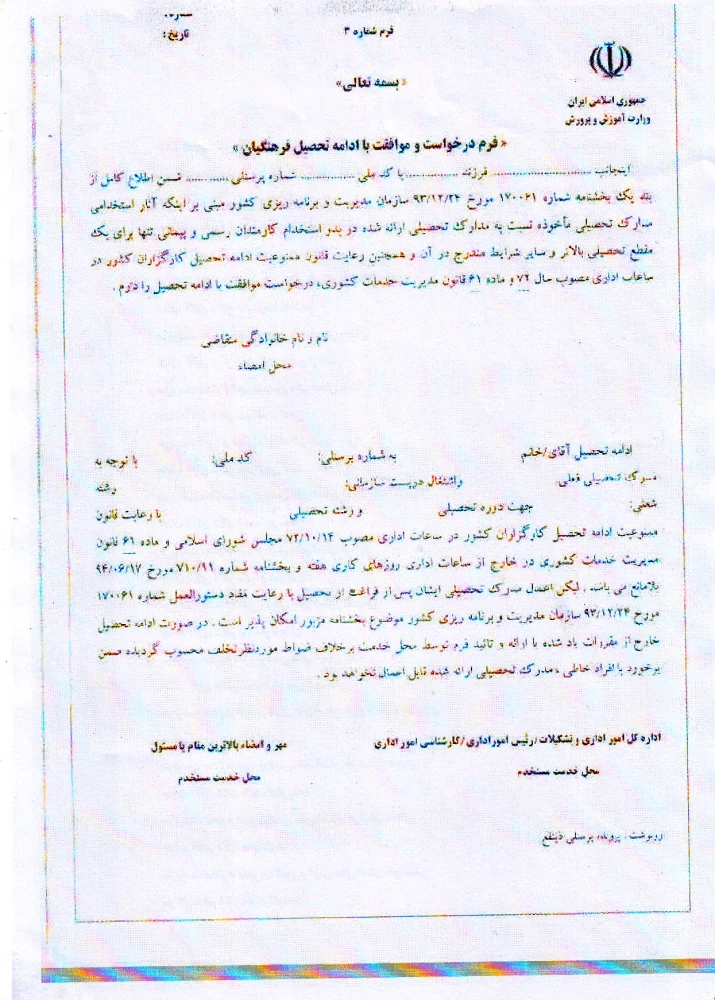 شماره:
تاریخ:
فرم شماره ۳
« بسمه تعالی»
جمهوری اسلامی ایران
وزارت آموزش و پرورش
« فرم درخواست و موافقت با ادامه تحصیل فرهنگیان »
اینجانب ........................ فرزند ................ با کد ملی ................ شماره پرسنلی ............ ضمن اطلاع کامل از
بند یک بخشنامه شماره ۱۷۰۰۶۱ مورخ ۹۳/۱۲/۲۴ سازمان مدیریت و برنامه ریزی کشور مبنی بر اینکه آثار استخدامی
مدارک تحصیلی مأخوذه نسبت به مدارک تحصیلی ارائه شده در بدو استخدام کارمندان رسمی و پیمانی تنها برای یک
مقطع تحصیلی بالاتر و سایر شرایط مندرج در آن و همچنین رعایت قانون ممنوعیت ادامه تحصیل کارگزاران کشور در
ساعات اداری مصوب سال ۷۲ و ماده ۶۱ قانون مدیریت خدمات کشوری، درخواست موافقت با ادامه تحصیل را دارم .
نام و نام خانوادگی متقاضی
محل امضاء
ادامه تحصیل آقای/خانم به شماره پرسنلی: کد ملی: با توجه به
مدرک تحصیلی فعلی: واشتغال درپست سازمانی: رشته
شغلی: جهت دوره تحصیلی و رشته تحصیلی با رعایت قانون
ممنوعیت ادامه تحصیل کارگزاران کشور در ساعات اداری مصوب ۷۲/۱۰/۱۴ مجلس شورای اسلامی و ماده ۶۱ قانون
مدیریت خدمات کشوری در خارج از ساعات اداری روزهای کاری هفته و بخشنامه شماره ۷۱۰/۹۱ مورخ ۹۴/۰۶/۱۷
بلامانع می باشد . لیکن اعمال مدرک تحصیلی ایشان پس از فراغت از تحصیل با رعایت مفاد دستورالعمل شماره ۱۷۰۰۶۱
مورخ ۹۳/۱۲/۲۴ سازمان مدیریت و برنامه ریزی کشور موضوع بخشنامه مزبور امکان پذیر است . در صورت ادامه تحصیل
خارج از مقررات یاد شده یا ارائه و تائید فرم توسط محل خدمت برخلاف ضوابط موردنظر تخلف محسوب گردیده ضمن
برخورد با افراد خاطی ، مدرک تحصیلی ارائه شده قابل اعمال نخواهد بود .
اداره کل امور اداری و تشکیلات /رئیس اموراداری /کارشناسی امور اداری
محل خدمت مستخدم
مهر و امضاء بالاترین مقام یا مسئول
محل خدمت مستخدم
رونوشت : پرونده پرسنلی ذینفع